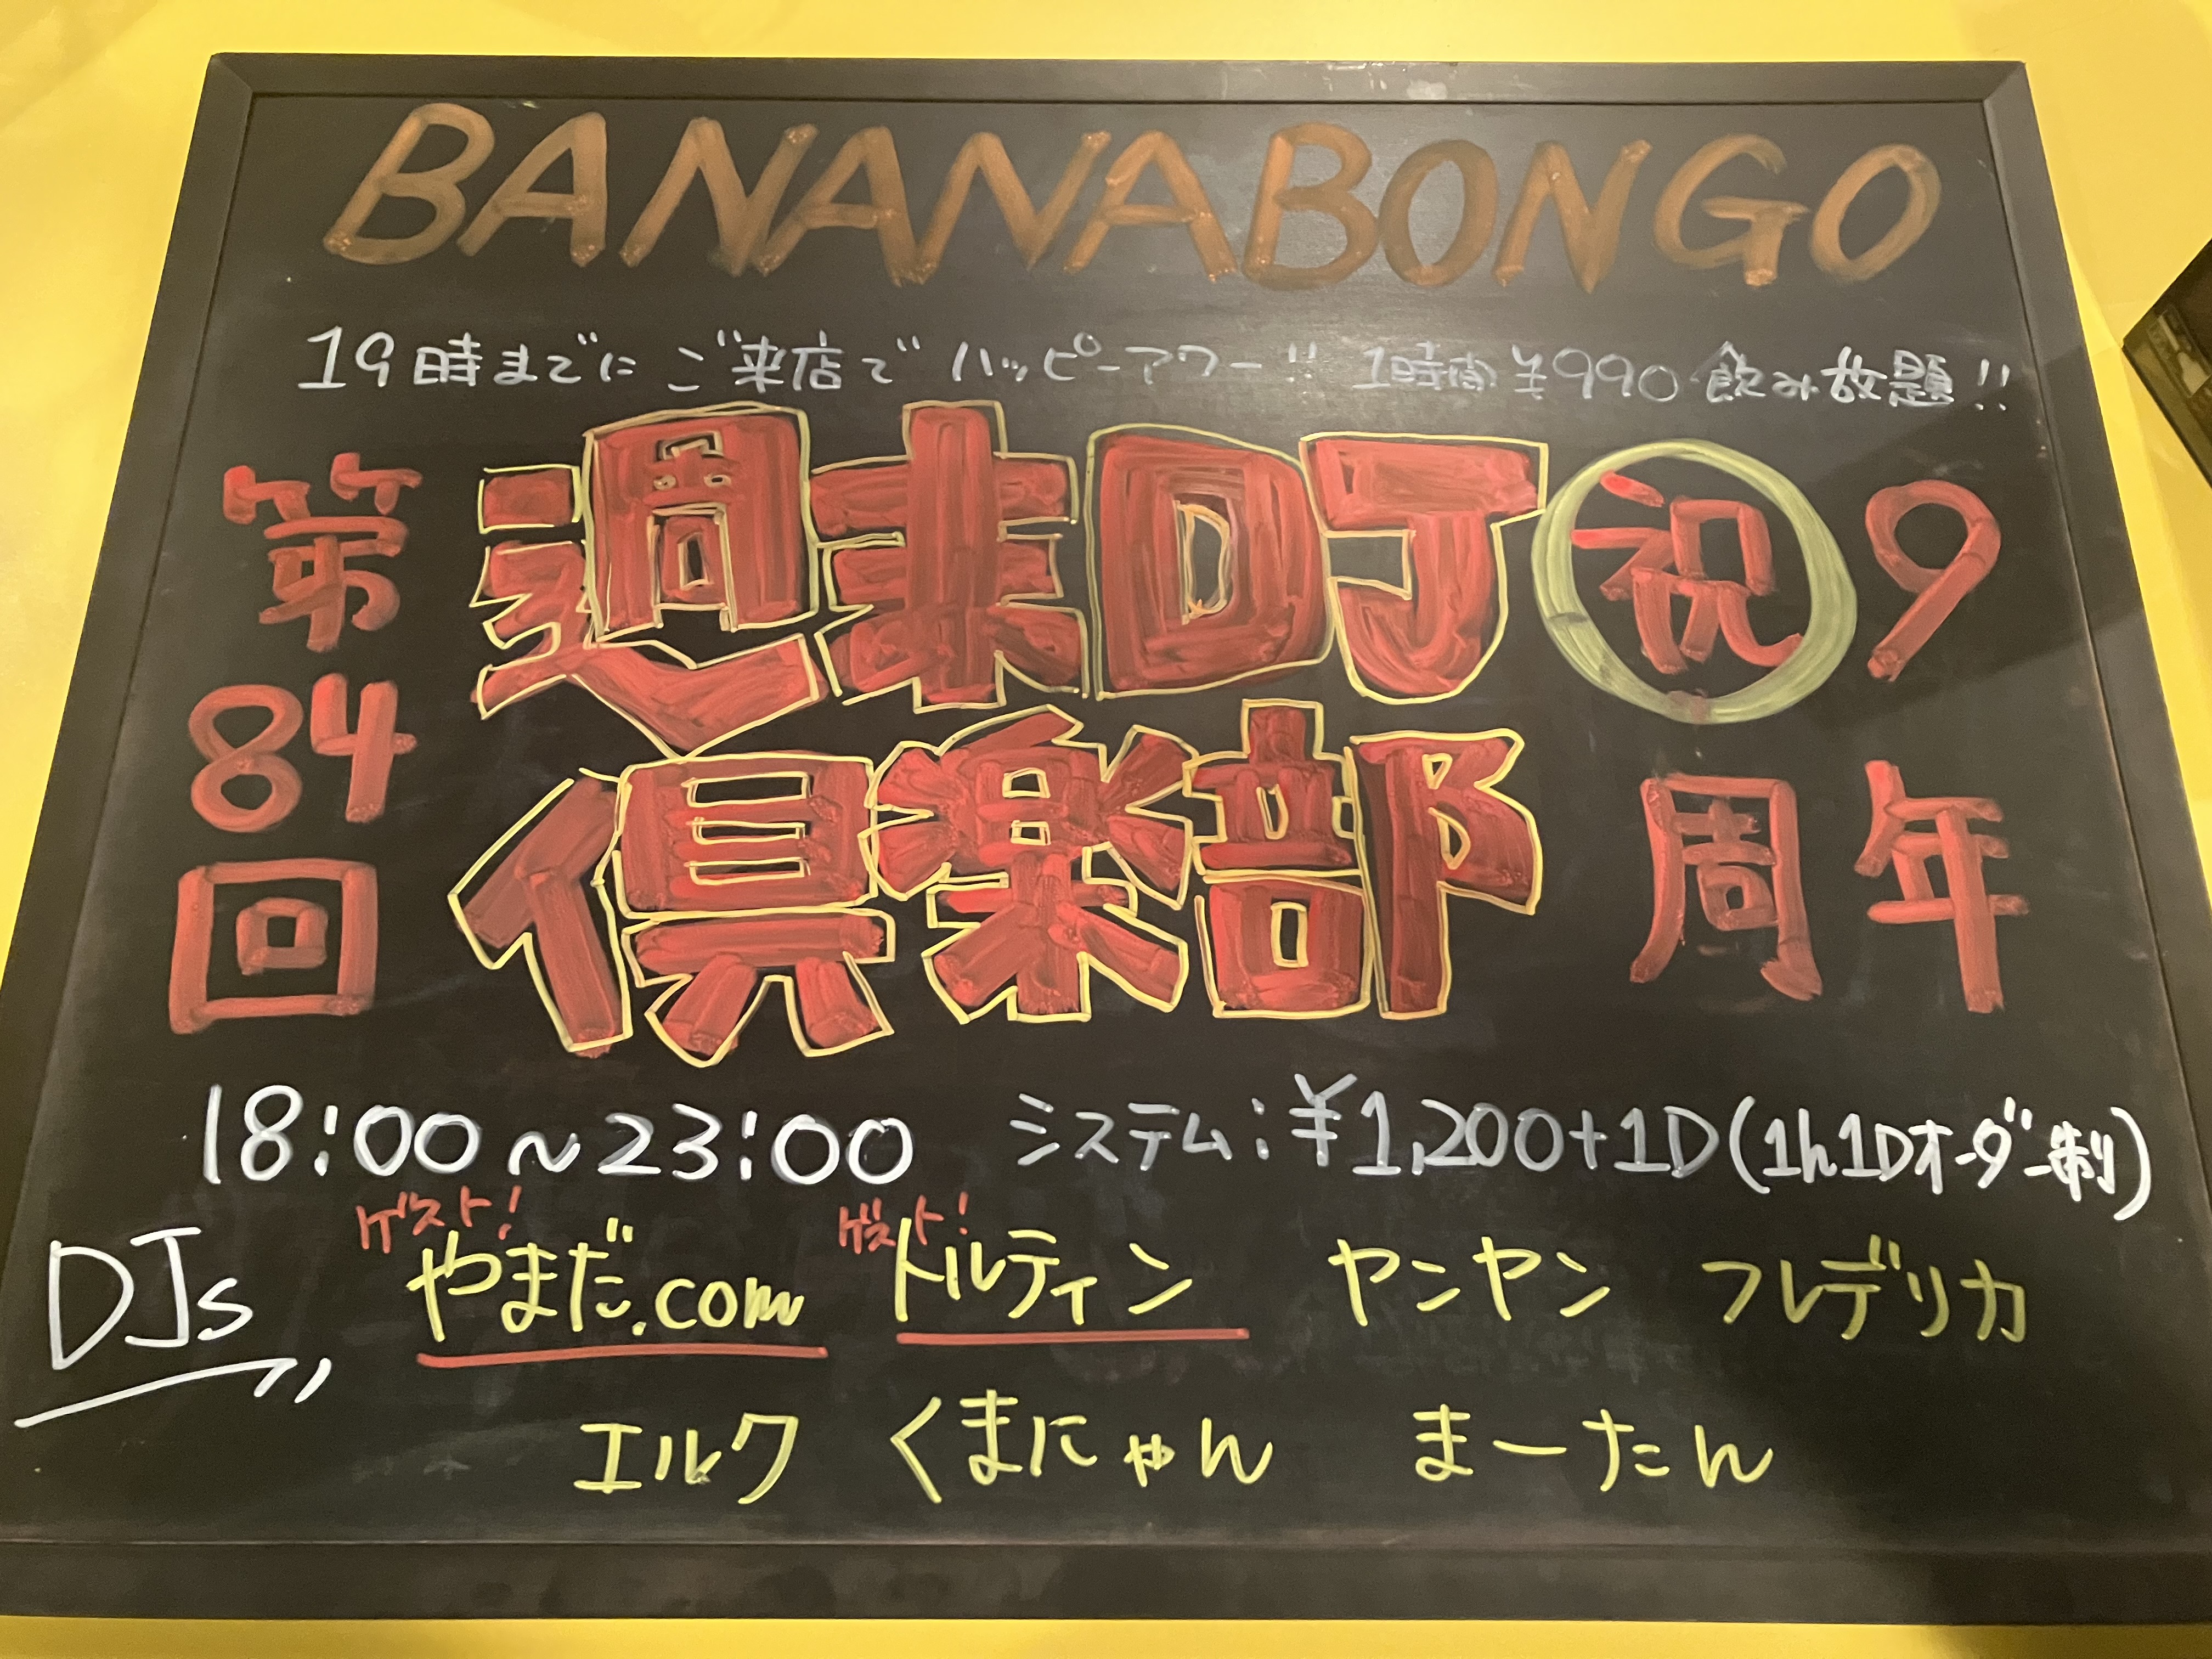 BANANABONGO
19時までにご来店でハッピーアワー!! 1時間¥990飲み放題!!
第84回
週末DJ
倶楽部
祝9周年
18:00~23:00 システム:¥1,200+1D(1h1Dオーダー制)
ゲスト! ゲスト!
DJs やまだ.com ドルティン ヤンヤン フレデリカ
エルク くまにゃん まーたん